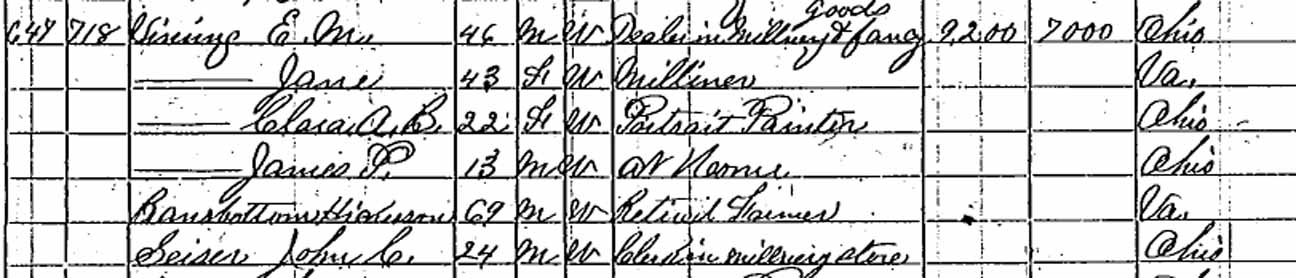 Goods
647 718 Vining E. M. 46 M W Dealer in Millinery & fancy 9200 7000 Ohio
Jane 43 F W Milliner Va.
Clara A. B. 22 F W Portrait Painter Ohio
James P. 13 M W at Home Ohio
Ransbottom 69 M W Retired Farmer Va.
Seiser John C. 24 M W Clerk in millinery store Ohio